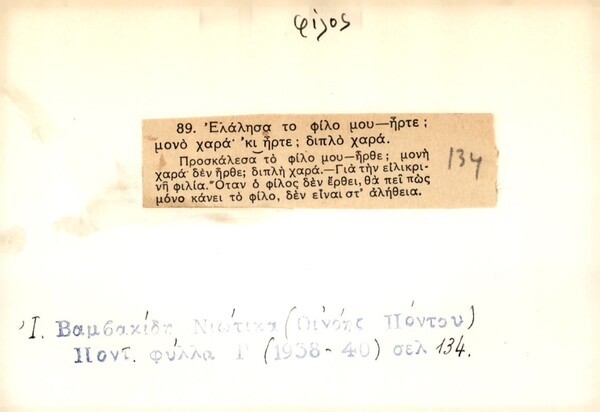 φίλος
89. Ἐλάλησα το φίλο μου—ἦρτε;
μονὸ χαρά· ᾿κι ἦρτε; διπλὸ χαρά.
Προσκάλεσα τὸ φίλο μου—ἦρθε; μονὴ
χαρά· δὲν ἦρθε; διπλὴ χαρά.—Γιὰ τὴν εἰλικρι-
νῆ φιλία. Ὅταν ὁ φίλος δὲν ἔρθει, θὰ πεῖ πὼς
μόνο κάνει τὸ φίλο, δὲν εἶναι στ᾿ ἀλήθεια.
134
Ἰ. Βαμβακίδη Νιώτικα (Οἰνόης Πόντου)
Ποντ. φύλλα Γ (1938-40) σελ 134.